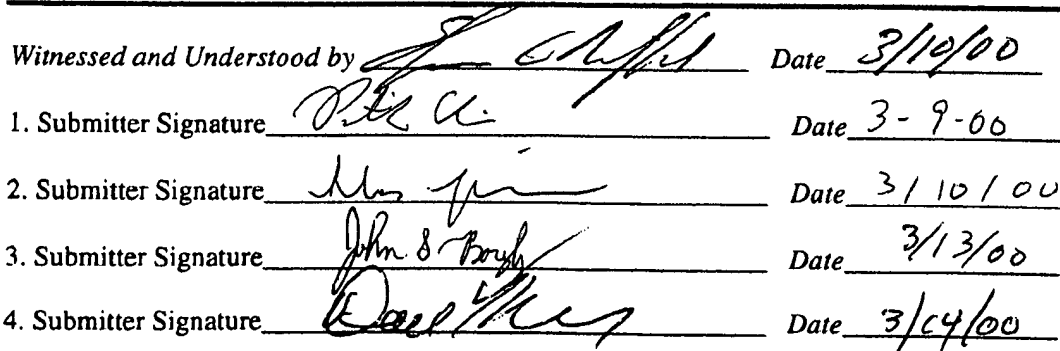 Witnessed and Understood by Date 3/10/00
1. Submitter Signature Date 3-9-00
2. Submitter Signature Date 3/10/00
3. Submitter Signature John S Date 3/13/00
4. Submitter Signature Date 3/14/00